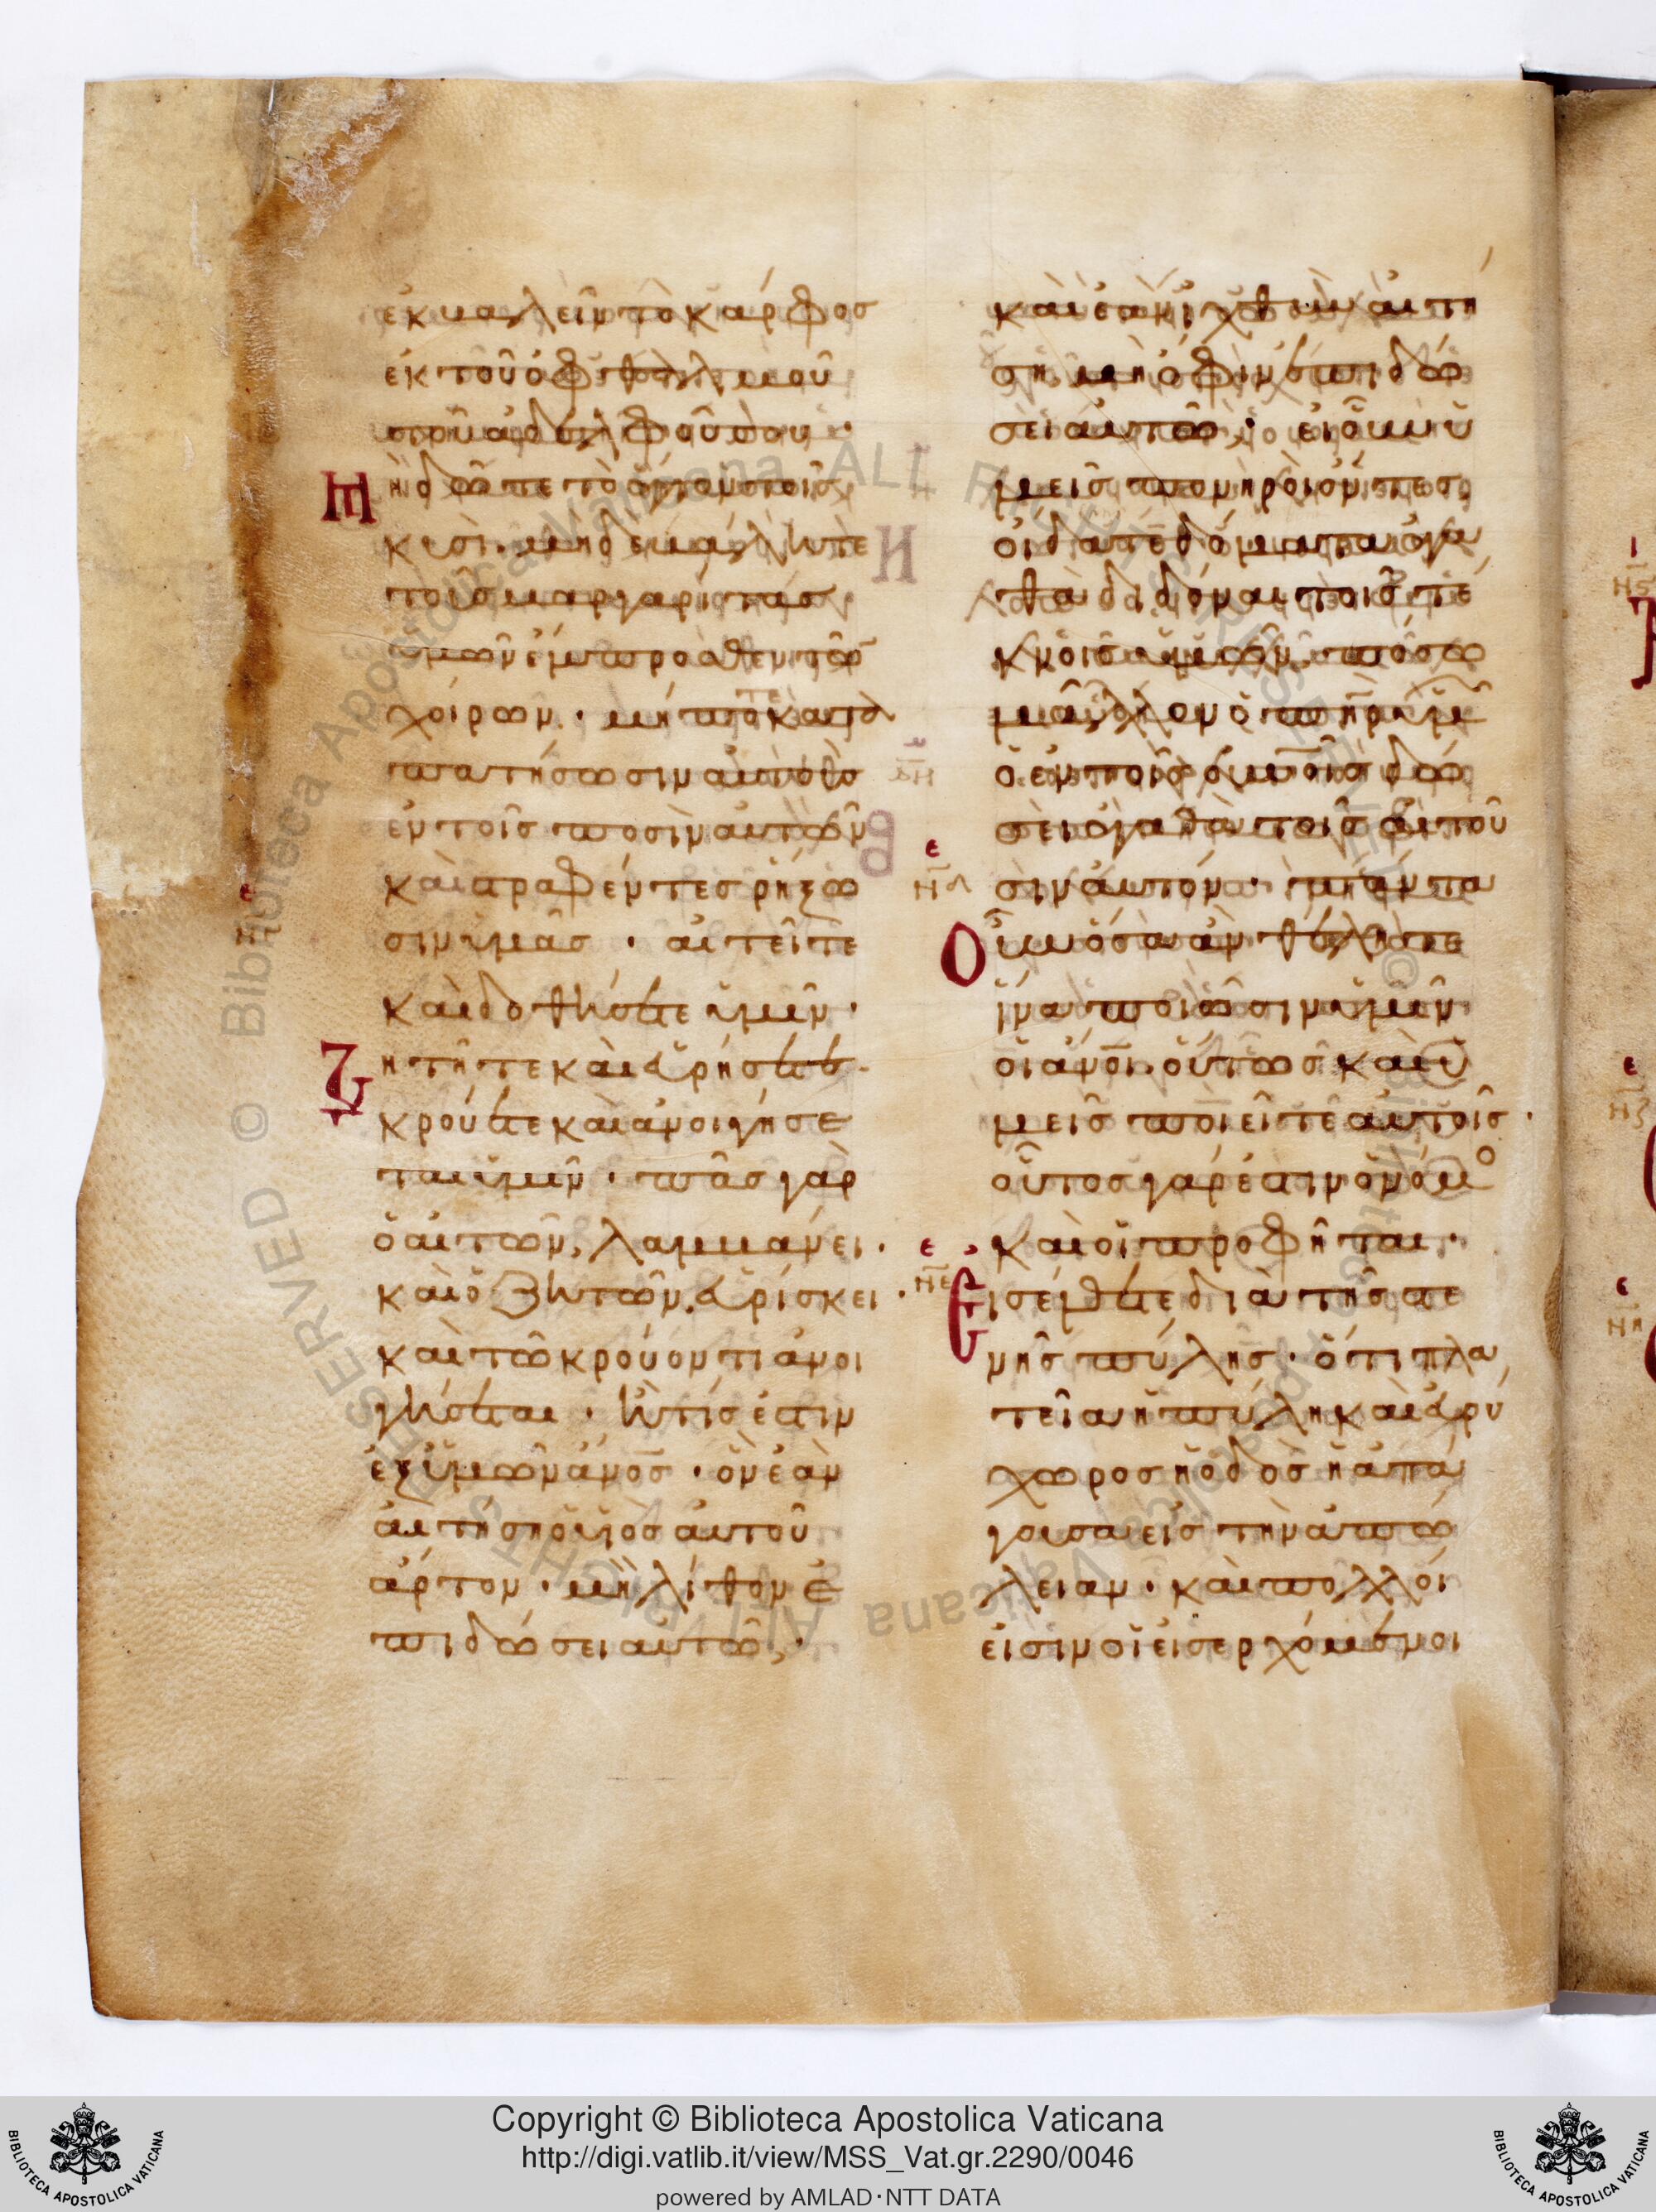 ἐκβαλεῖν τὸ κάρφος
ἐκ τοῦ ὀφθαλμοῦ
τοῦ ἀδελφοῦ σου ·
Μὴ δῶτε τὸ ἅγιον τοῖς
κυσί · μηδὲ βάλητε
τοὺς μαργαρίτας
ὑμῶν ἔμπροσθεν τῶν
χοίρων · μήποτε κατα
πατήσωσιν αὐτοὺς
ἐν τοῖς ποσὶν αὐτῶν
καὶ στραφέντες ῥήξω
σιν ὑμᾶς · αἰτεῖτε
καὶ δοθήσεται ὑμῖν ·
Ζητῆτε καὶ εὑρήσετε ·
κρούετε καὶ ἀνοιγήσε
ται ὑμῖν · πᾶς γὰρ
ὁ αἰτῶν, λαμβάνει ·
καὶ ὁ ζητῶν, εὑρίσκει ·
καὶ τῶ κρούοντι ἀνοι
γήσεται · ἢ τίς ἐστιν
ἐξ ὑμῶν ἀνος · ὃν ἐὰν
αἰτήση ὁ υἱὸς αὐτοῦ
ἄρτον · μὴ λίθον ἐ
πιδώσει αὐτῶ ·
καὶ ἐὰν ἰχθὺν αἰτή
ση, μὴ ὄφιν ἐπιδώ
σει αὐτῶ · εἰ οὖν ὑ
μεῖς πονηροὶ ὄντες
οἴδατε δόματα ἀγα
θὰ διδόναι τοῖς τέ
κνοις ὑμῶν, πόσω
μᾶλλον ὁ πηρ ὑμ
ὁ ἐν τοῖς οὐνοις δώ
σει ἀγαθὰ τοῖς αἰτοῦ
σιν αὐτόν · πάντα
Οὖν ὅσα ἂν θέλητε
ἵνα ποιῶσιν ὑμῖν
οἱ ἀνοι · οὕτως καὶ ὑ
μεῖς ποιεῖτε αὐτοῖς ·
οὗτος γάρ ἐστιν ὁ νόμο
καὶ οἱ προφῆται ·
Εἰσέλθετε διὰ τῆς στε
νῆς πύλης · ὅτι πλα
τεῖα ἡ πύλη καὶ εὐρύ
χωρος ἡ ὁδὸς ἡ ἀπά
γουσα εἰς τὴν ἀπώ
λειαν · καὶ πολλοί
εἰσιν οἱ εἰσερχόμενοι
ε
νδ
ε
νε
Copyright © Biblioteca Apostolica Vaticana
http://digi.vatlib.it/view/MSS_Vat.gr.2290/0046
powered by AMLAD·NTT DATA
BIBLIOTECA APOSTOLICA VATICANA
BIBLIOTECA APOSTOLICA VATICANA